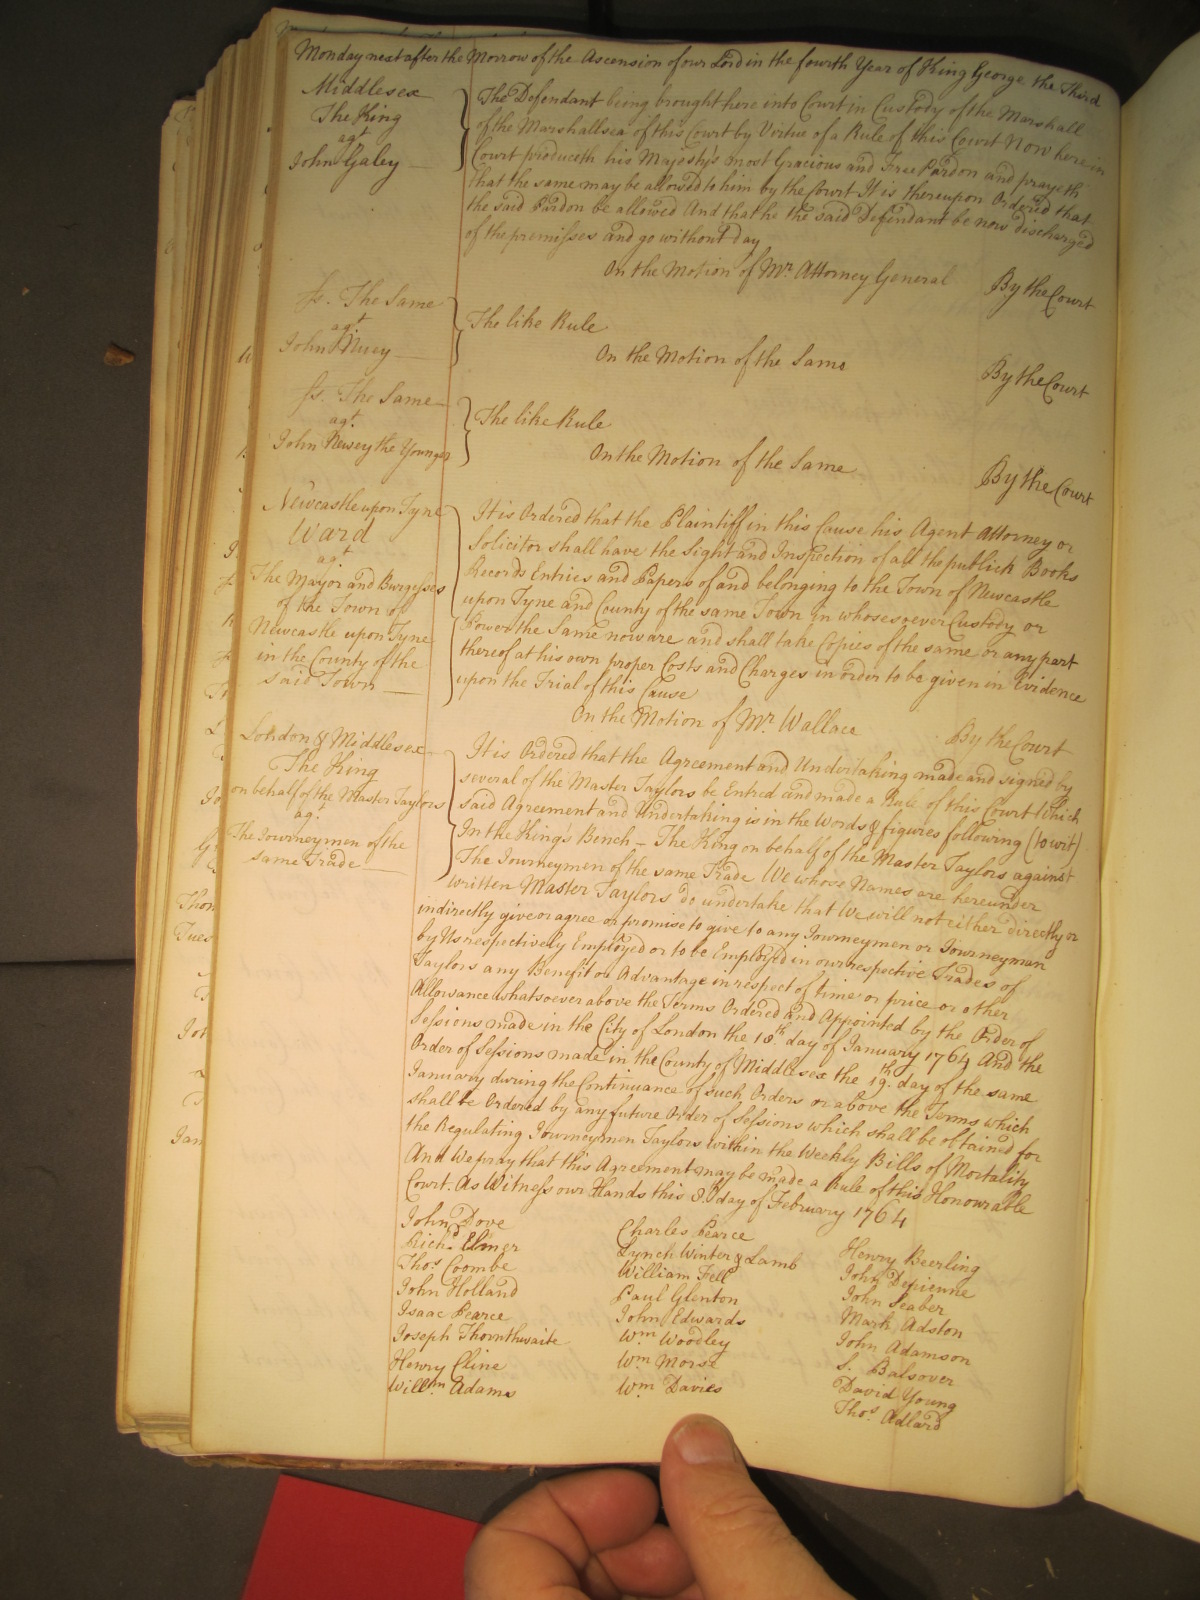 Monday next after the Morrow of the Ascension of our Lord in the fourth Year of King George the Third
Middlesex
The King
agt
John Galey
The Defendant being brought here into Court in Custody of the Marshall
of the Marshallsea of this Court by Virtue of a Rule of this Court Now here in
Court produceth his Majesty's most Gracious and Free Pardon and prayeth
that the same may be allowed to him by the Court It is thereupon Ordered that
the said Pardon be allowed And that he the said Defendant be now discharged
of the premisses and go without day
On the Motion of Mr. Attorney General
By the Court
ss. The Same
agt
John
The like Rule
On the Motion of the Same
By the Court
ss. The Same
agt.
John Newey the Younger
The like Rule
On the Motion of the Same
By the Court
Newcastle upon Tyne
Ward
agt
The Mayor and Burgesses
of the Town of
Newcastle upon Tyne
in the County of the
said Town
It is Ordered that the Plaintiff in this Cause his Agent Attorney or
Solicitor shall have the Sight and Inspection of all the publick Books
Records Entries and Papers of and belonging to the Town of Newcastle
upon Tyne and County of the same Town in whosesoever Custody or
Power the Same now are and shall take Copies of the same or any part
thereof at his own proper Costs and Charges in order to be given in Evidence
upon the Trial of this Cause
On the Motion of Mr. Wallace
By the Court
London & Middlesex
The King
on behalf of the Master Taylors
agt.
The Journeymen of the
same Trade
It is Ordered that the Agreement and Undertaking made and signed by
several of the Master Taylors be Entred and made a Rule of this Court Which
said Agreement and Undertaking is in the Words & figures following (to wit)
In the King's Bench - The King on behalf of the Master Taylors against
The Journeymen of the same Trade We whose Names are hereunder
written Master Taylors do undertake that We will not either directly or
indirectly give or agree or promise to give to any Journeymen or Journeyman
by Us respectively Employed or to be Employed in our respective Trades of
Taylors any Benefit or Advantage in respect of time or price or other
Allowance whatsoever above the Terms Ordered and Appointed by the Order of
Sessions made in the City of London the 18th day of January 1764 And the
Order of Sessions made in the County of Middlesex the 19th. day of the same
January during the Continuance of such Orders or above the Terms which
shall be Ordered by any future Order of Sessions which shall be obtained for
the Regulating Journeymen Taylors within the Weekly Bills of Mortality
And We pray that this Agreement may be made a Rule of this Honourable
Court. As Witness our Hands this day of February 1764
John Dove
Richd. Elmer
Thos Coombe
John Holland
Isaac Pearce
Joseph Thornthwaite
Henry Cline
Willm Adams
Charles Pearce
Lynch Winter & Lamb
William Fell
Paul Glenton
John Edwards
Wm Woodley
Wm Morse
Wm Davies
Henry Beerling
John Depienne
John Seaber
Mark Adston
John Adamson
S. Balsover
David Young
Thos. Adlard